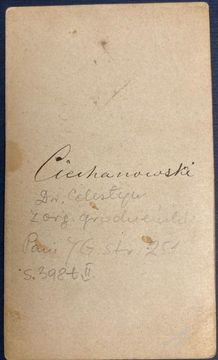 Ciechanowski
Dr. Celestyn
z org. grodzieńsk
Pam. TG. str. 251
s. 398 t II